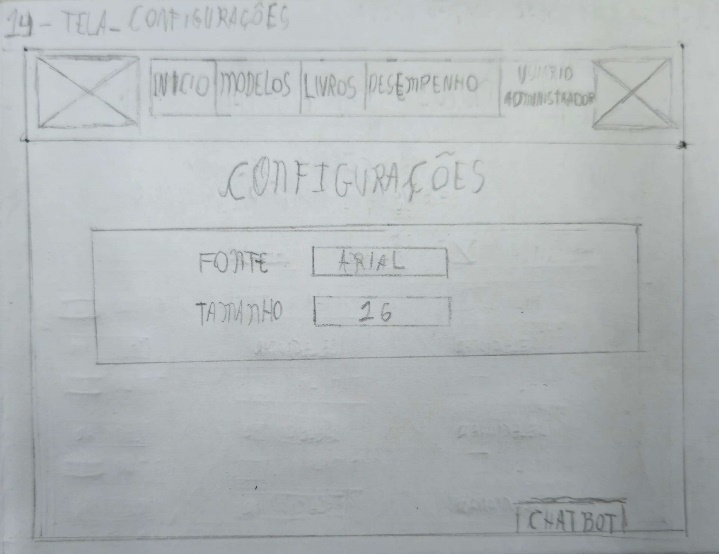 14 - TELA_ CONFIGURAÇÕES
INICIO MODELOS LIVROS DESEMPENHO USUARIO
ADMINISTRADOR
CONFIGURAÇÕES
FONTE ARIAL
TAMANHO 16
CHATBOT